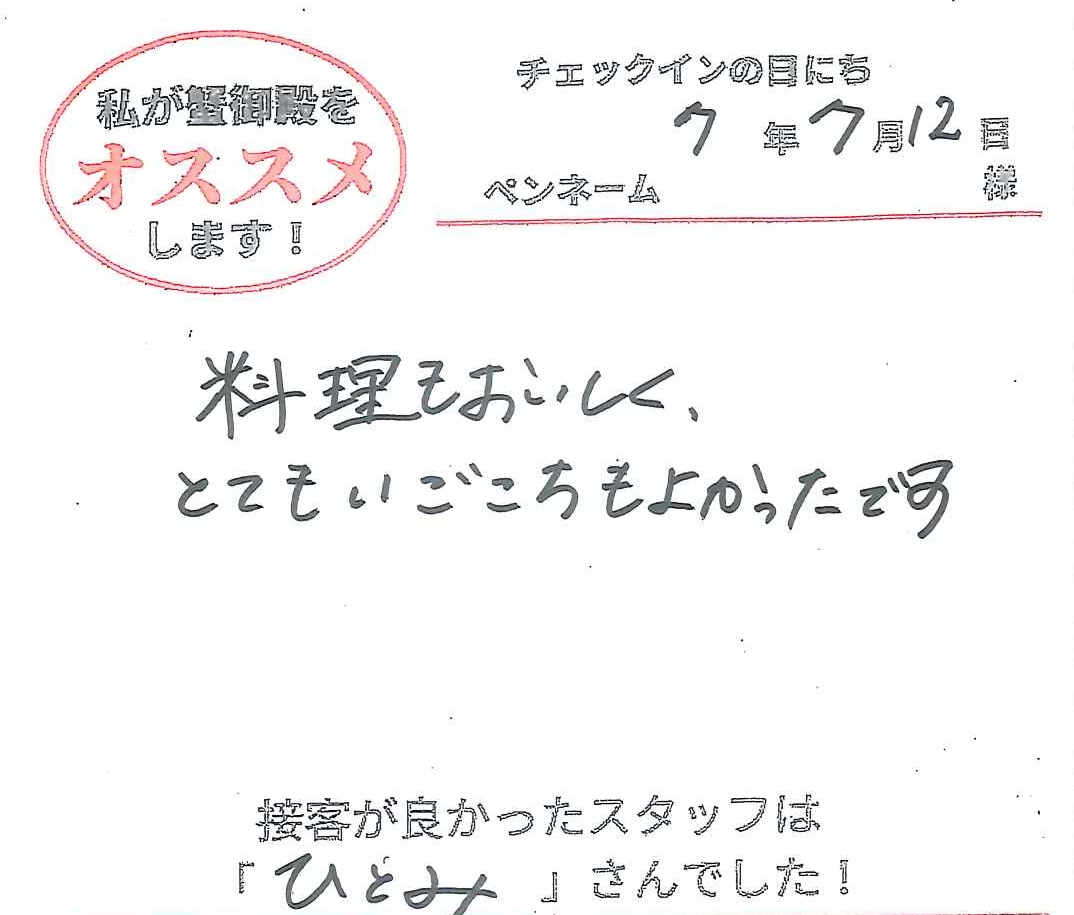 私が蟹御殿を
オススメ
します！
チェックインの日にち
7年7月12日
ペンネーム 様
料理もおいしく、
とてもいごこちもよかったです
接客が良かったスタッフは
「ひとみ」さんでした！